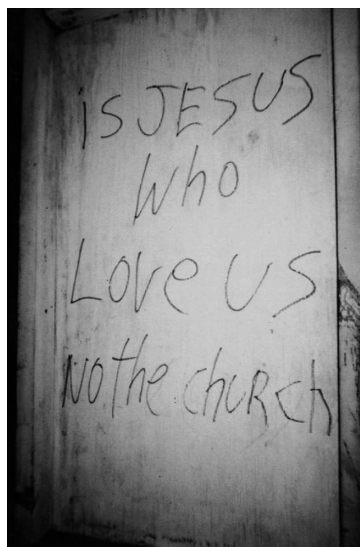 is JESUS
Who
Love US
NO the chuRch